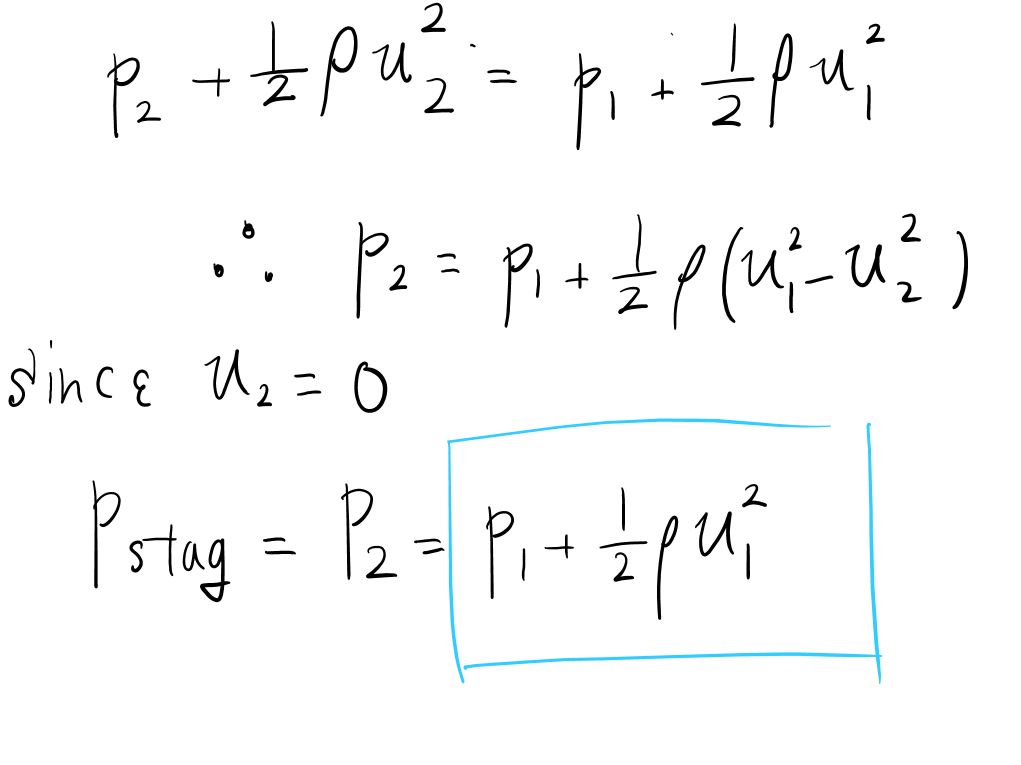 p₂ + ½ ρ u₂² = p₁ + ½ ρ u₁²
∴ p₂ = p₁ + ½ ρ (u₁² - u₂²)
since u₂ = 0
P_stag = P₂ = p₁ + ½ ρ u₁²